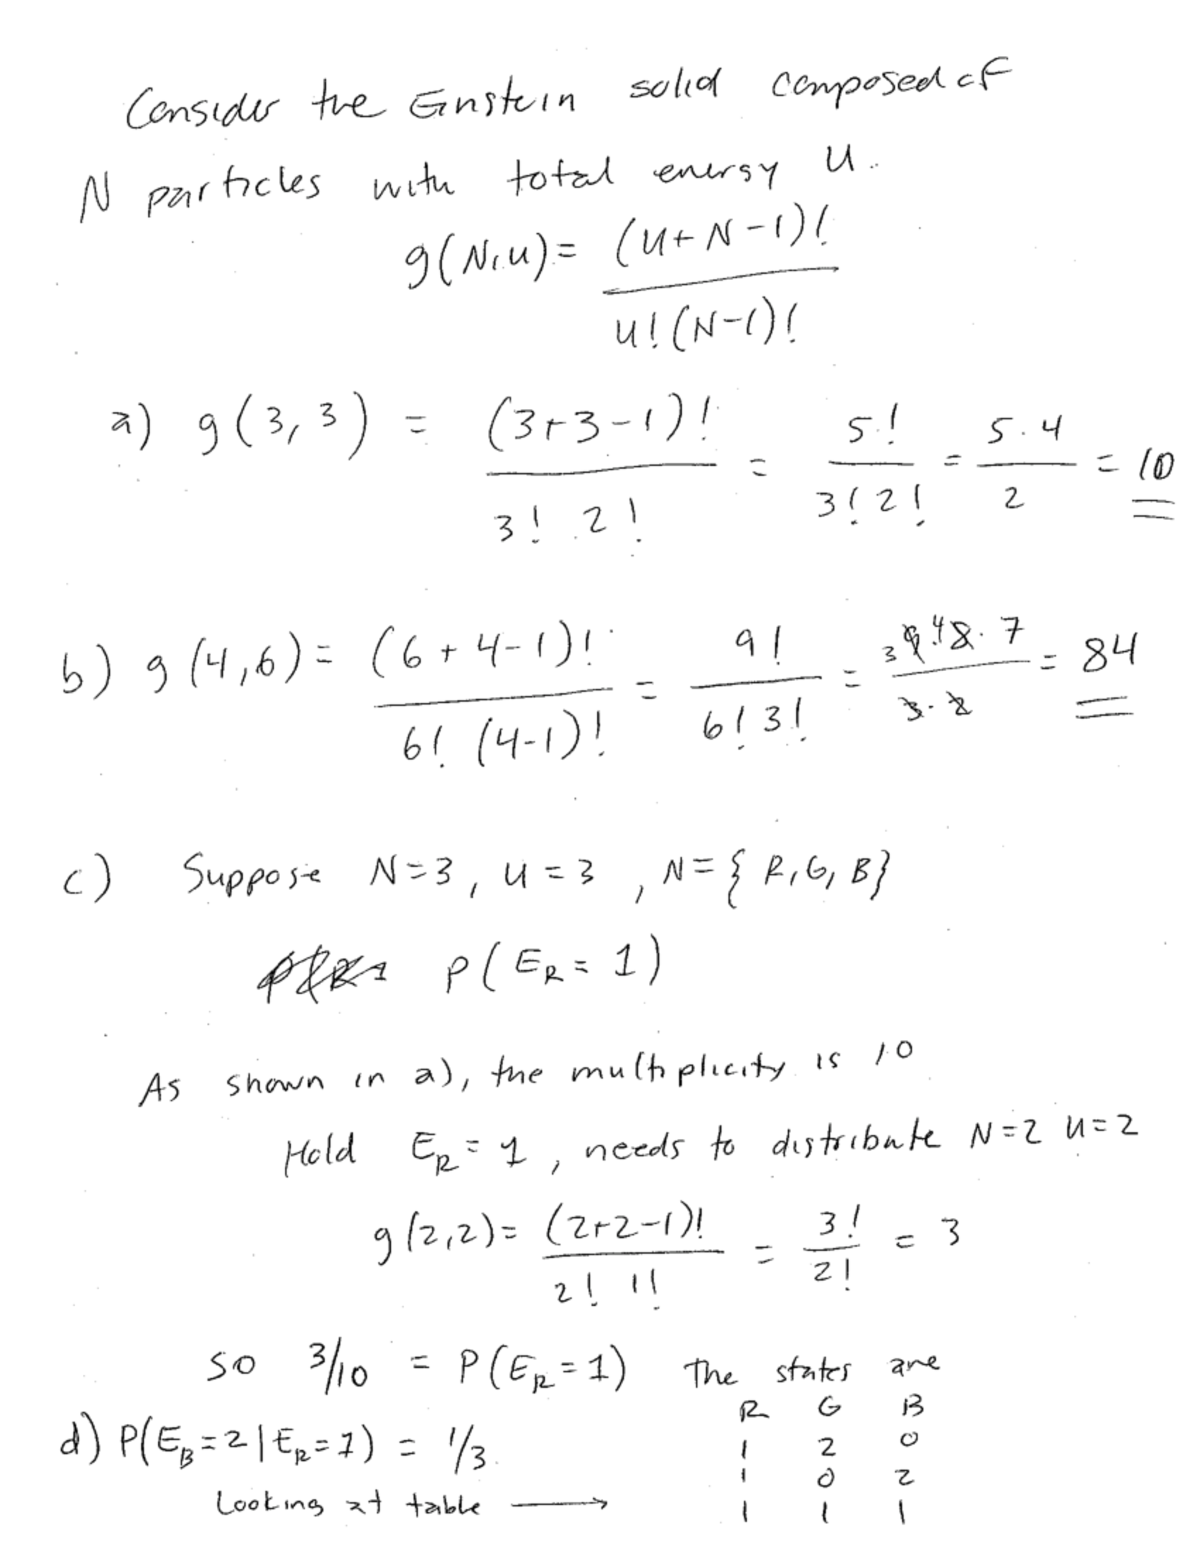 Consider the Einstein solid composed of
N particles with total energy U.
g(N,U) = (U+N-1)!
U!(N-1)!
a) g(3,3) = (3+3-1)! / 3! 2! = 5! / 3! 2! = 5·4 / 2 = 10
b) g(4,6) = (6+4-1)! / 6! (4-1)! = 9! / 6! 3! = 3 9·4 8·7 / 3·2 = 84
c) Suppose N=3, U=3, N={R,G,B}
P(E_R = 1)
As shown in a), the multiplicity is 10
Hold E_R = 1, needs to distribute N=2 U=2
g(2,2) = (2+2-1)! / 2! 1! = 3! / 2! = 3
so 3/10 = P(E_R = 1) The states are
R G B
d) P(E_B = 2 | E_R = 1) = 1/3
1 2 0
1 0 2
Looking at table →
1 1 1